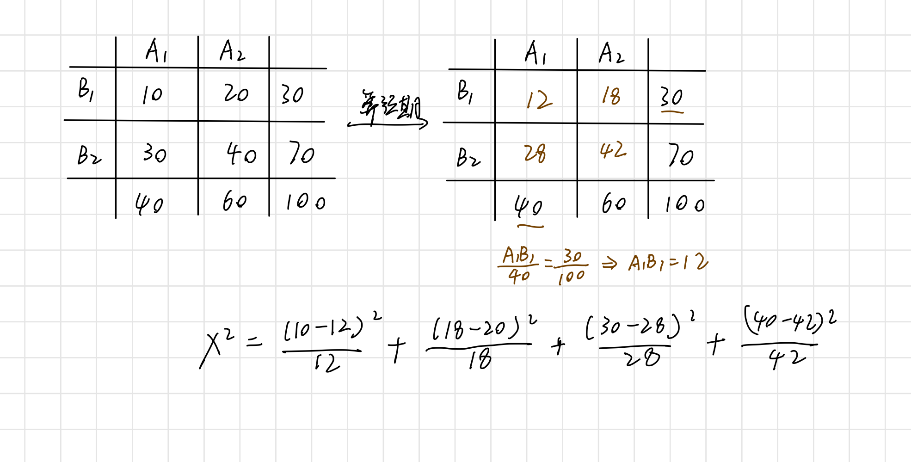 A₁ A₂
B₁ 10 20 30
B₂ 30 40 70
40 60 100
A₁ A₂
B₁ 12 18 30
B₂ 28 42 70
40 60 100
A₁B₁/40 = 30/100 ⇒ A₁B₁ = 12
χ² = (10-12)²/12 + (18-20)²/18 + (30-28)²/28 + (40-42)²/42